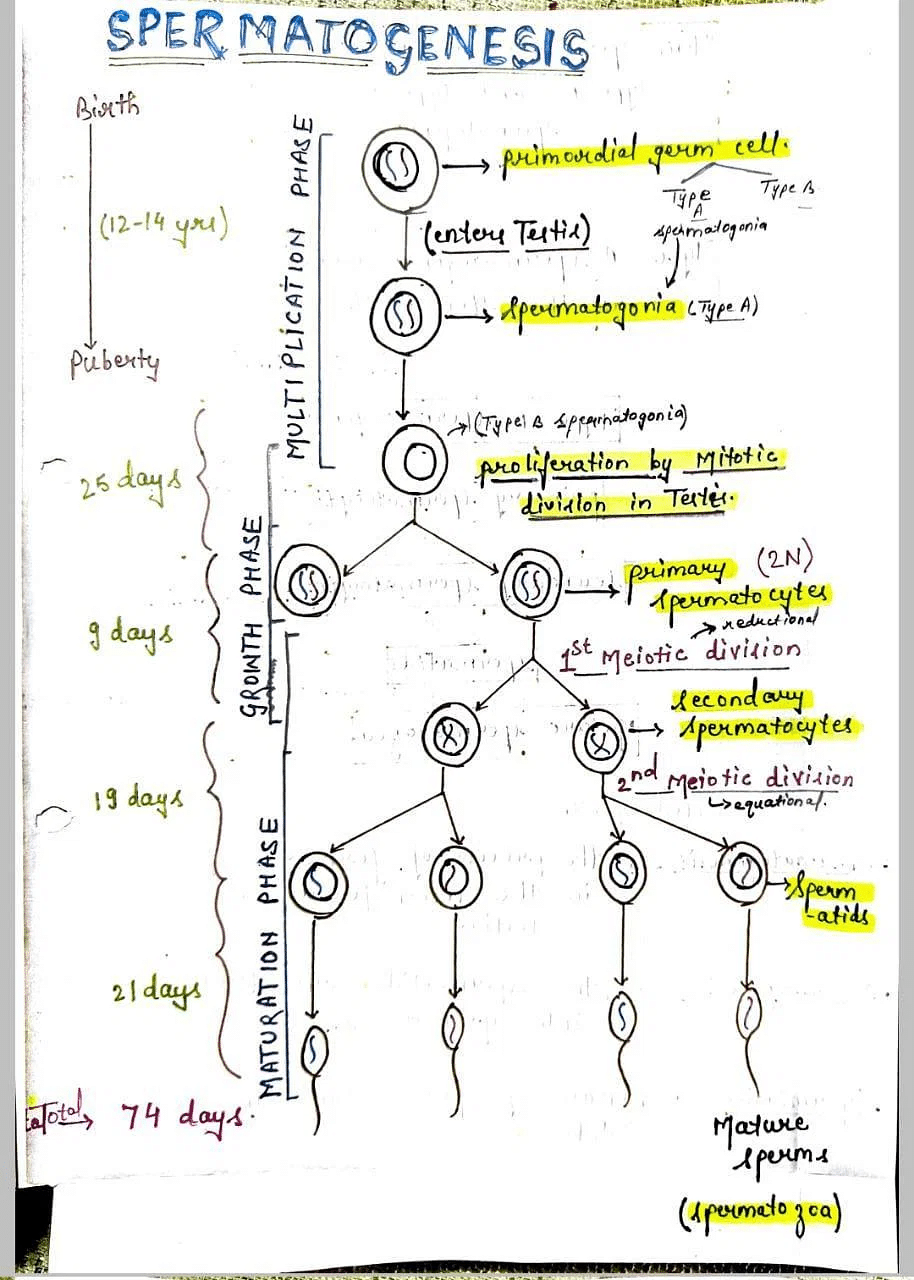 SPERMATOGENESIS
Birth
(12-14 yrs)
Puberty
25 days
9 days
19 days
21 days
Total → 74 days.
MULTIPLICATION PHASE
GROWTH PHASE
MATURATION PHASE
primordial germ cell.
Type A spermatogonia
Type B
(enters Testis)
spermatogonia (Type A)
(Type B spermatogonia)
proliferation by Mitotic
division in Testis.
primary (2N)
spermatocytes
reductional
1st Meiotic division
secondary
spermatocytes
2nd Meiotic division
equational.
sperm
-atids
Mature
sperms
(spermatozoa)